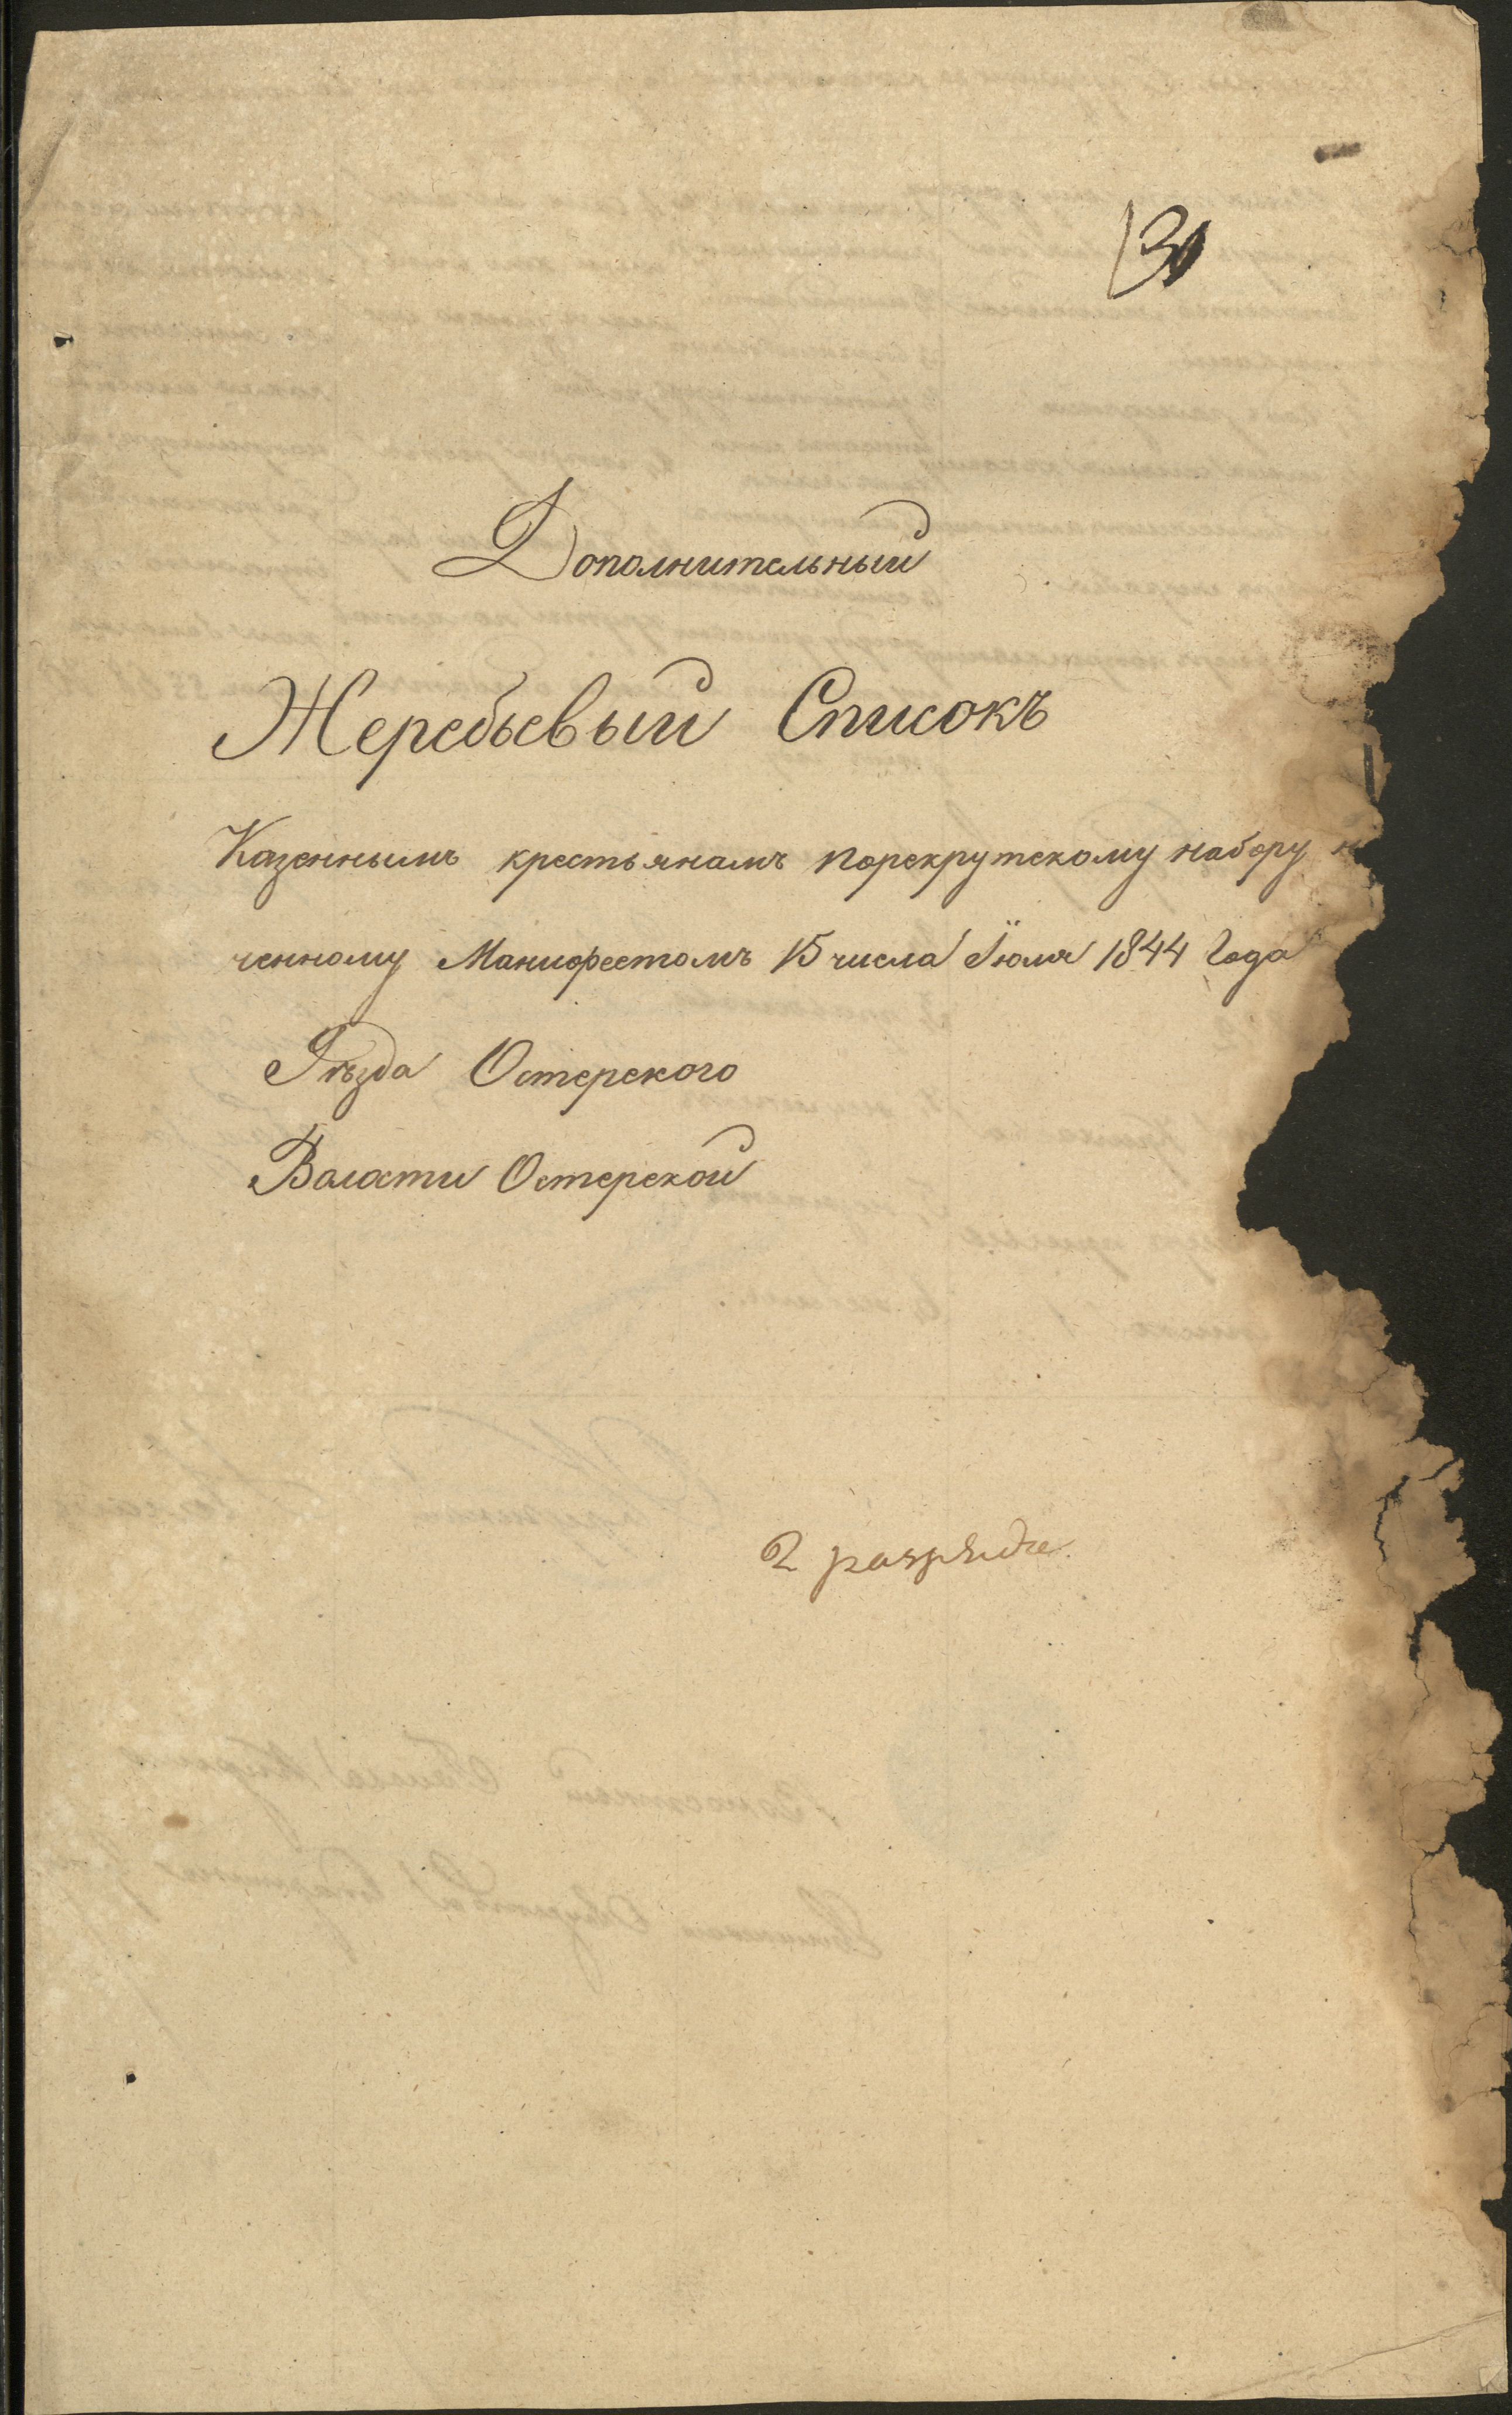 Дополнительный
Жеребьевый Списокъ
Казеннымъ крестьянамъ порекрутскому набору н
ченному Манифестомъ 15 числа Іюля 1844 Года
Уѣзда Остерского
Волости Остерской
2 разряда